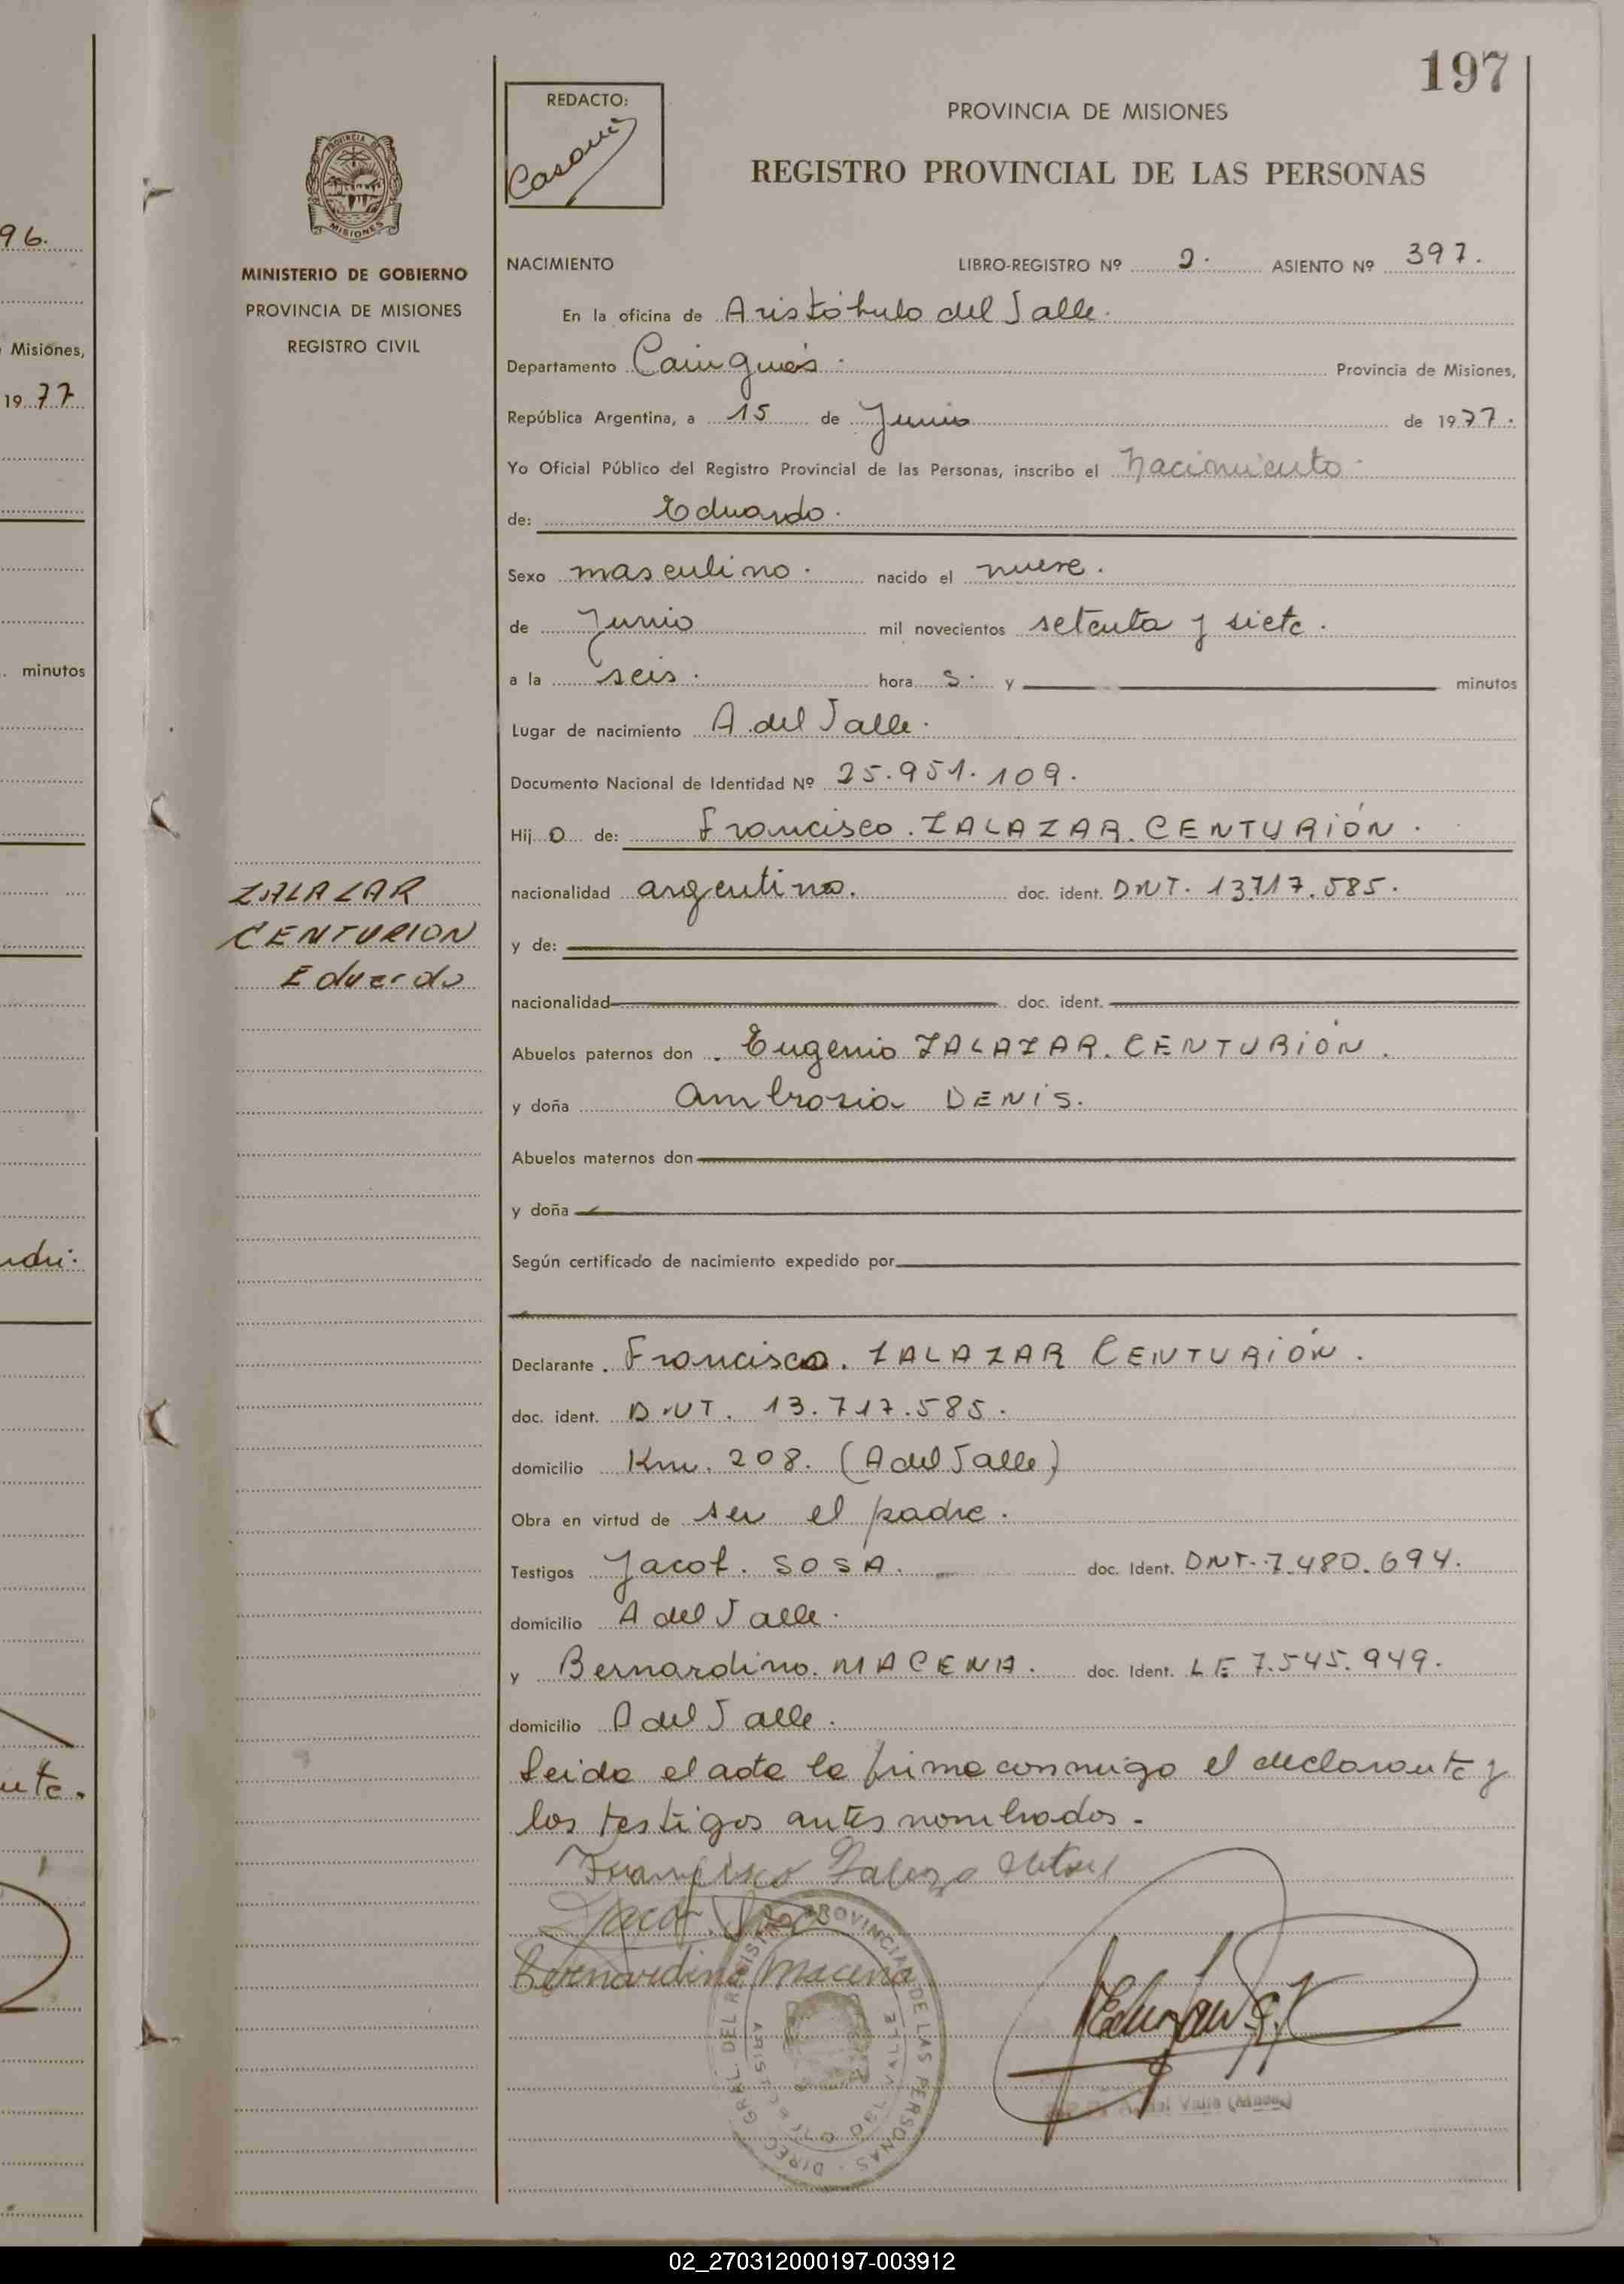 197
REDACTO:
PROVINCIA DE MISIONES
REGISTRO PROVINCIAL DE LAS PERSONAS
MINISTERIO DE GOBIERNO
PROVINCIA DE MISIONES
REGISTRO CIVIL
96.
Misiones,
1977
minutos
NACIMIENTO LIBRO-REGISTRO Nº 2. ASIENTO Nº 397.
En la oficina de Aristóbulo del Valle.
Departamento Cainguás. Provincia de Misiones,
República Argentina, a 15 de Junio de 1977.
Yo Oficial Público del Registro Provincial de las Personas, inscribo el Nacimiento
de: Eduardo.
Sexo masculino. nacido el nueve.
de Junio mil novecientos setenta y siete.
a la seis. hora s. y minutos
Lugar de nacimiento A. del Valle.
Documento Nacional de Identidad Nº 25.951.109.
Hijo de: Francisco. ZALAZAR. CENTURIÓN.
nacionalidad argentino. doc. ident. DNT. 13.717.585.
ZALAZAR
CENTURION
Eduardo
y de:
nacionalidad doc. ident.
Abuelos paternos don Eugenio ZALAZAR. CENTURIÓN.
y doña Ambrosia DENIS.
Abuelos maternos don
y doña
Según certificado de nacimiento expedido por
Declarante Francisco. ZALAZAR CENTURIÓN.
doc. ident. DNT. 13.717.585.
domicilio Km. 208. (A del Valle)
Obra en virtud de ser el padre.
Testigos Jacob. SOSA. doc. Ident. DNT. 7.480.694.
domicilio A del Valle.
y Bernardino. MACENA. doc. Ident. LE 7.545.949.
domicilio A del Valle.
Leida el acta la firma conmigo el declarante y
los testigos antes nombrados.
Francisco
Jacob. Sosa
Bernardino Macena
DIREC. GRAL. DEL REGISTRO PROVINCIAL DE LAS PERSONAS
ARISTOBULO DEL VALLE
02_270312000197-003912